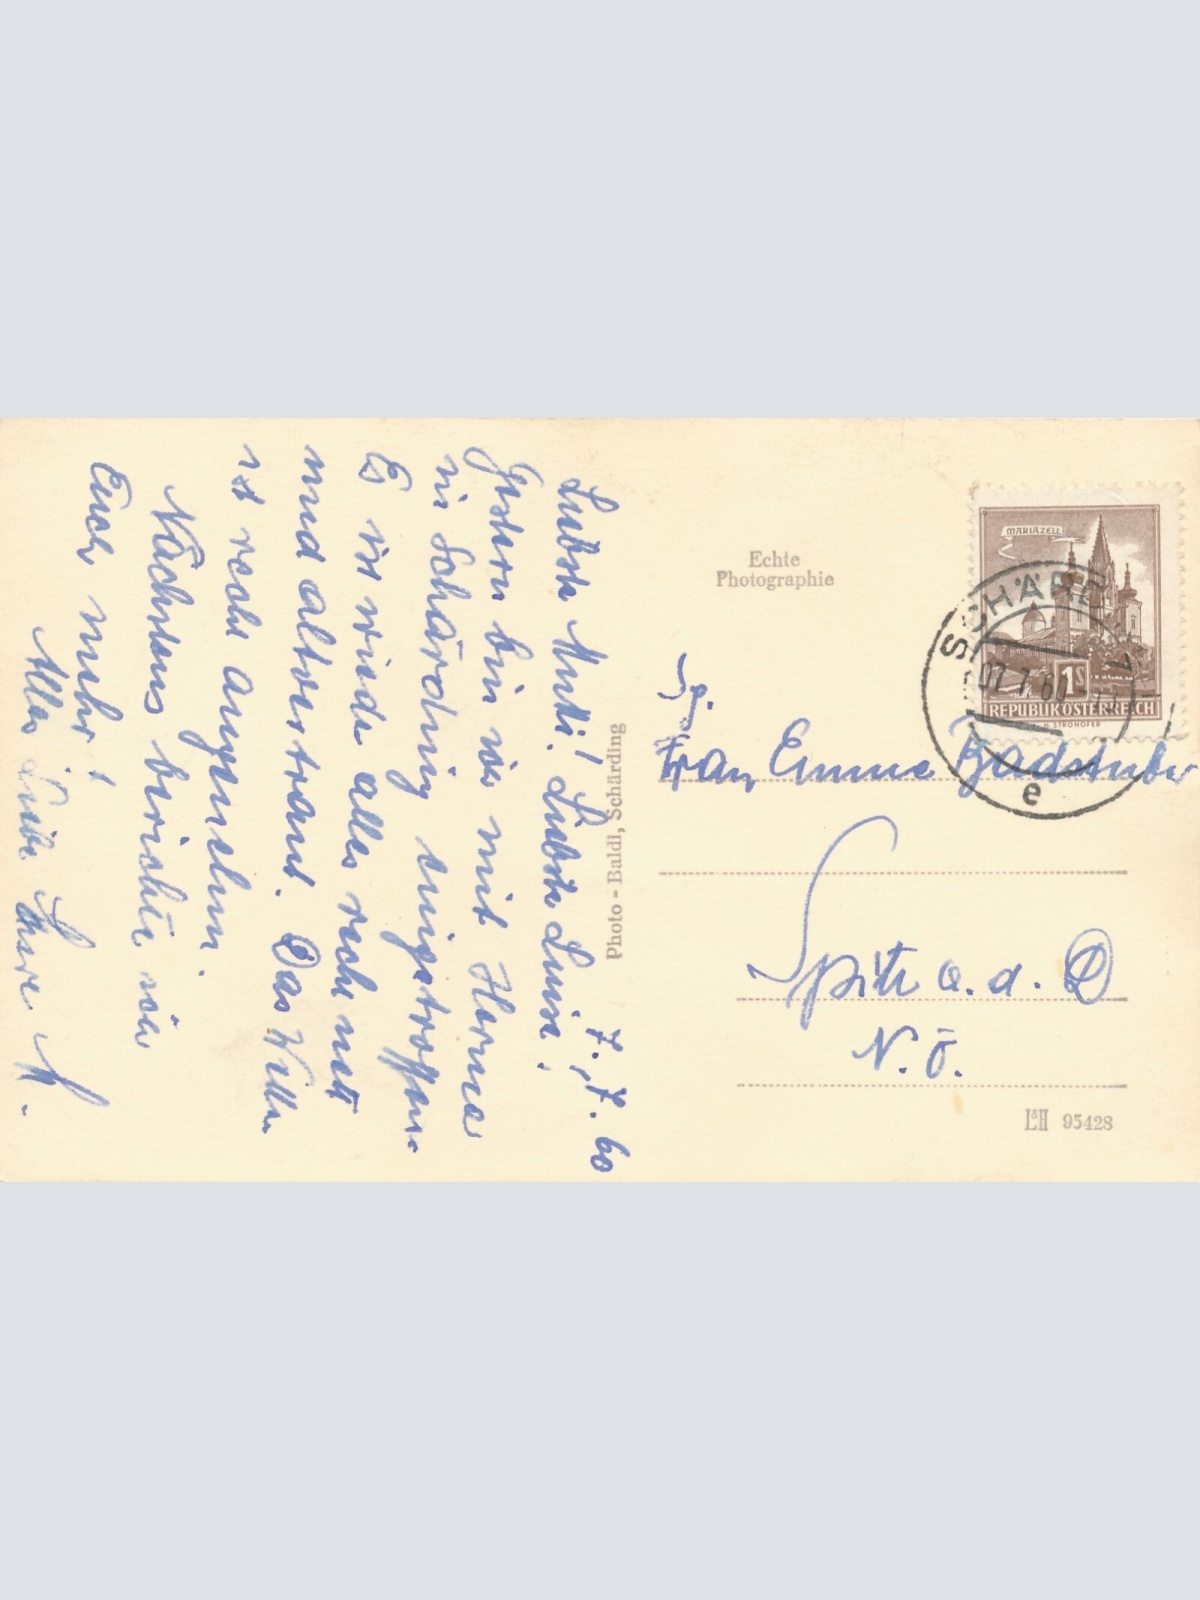 7.,7.60
Liebste Mutti! Liebste Luise!
Gestern bin ich mit
in Schärding eingetroffen.
Es ist wieder alles recht nett
und altvertraut. Das Wetter
ist recht angenehm.
Nächstens berichte ich
Euch mehr!
Alles Liebe Eure M.
Photo - Baldi, Schärding
Echte
Photographie
MARIAZELL
1S
REPUBLIK ÖSTERREICH
STROHOFER
SCHÄRD
07.7.60
e
Frau Emma Radstuber
Spitz a. d. D
N.Ö.
L&H 95428